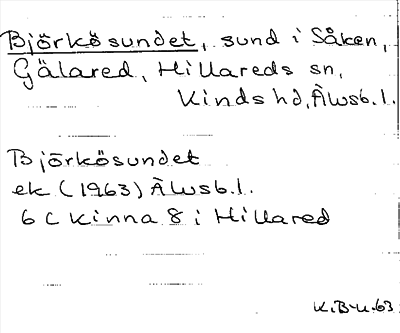 Björkösundet, sund i Såken,
Gälared, Hillareds sn,
Kinds hd, Älvsb. l.
Björkösundet
ek (1963) Älvsb. l.
6 C Kinna 8 i Hillared
K.B-u.63